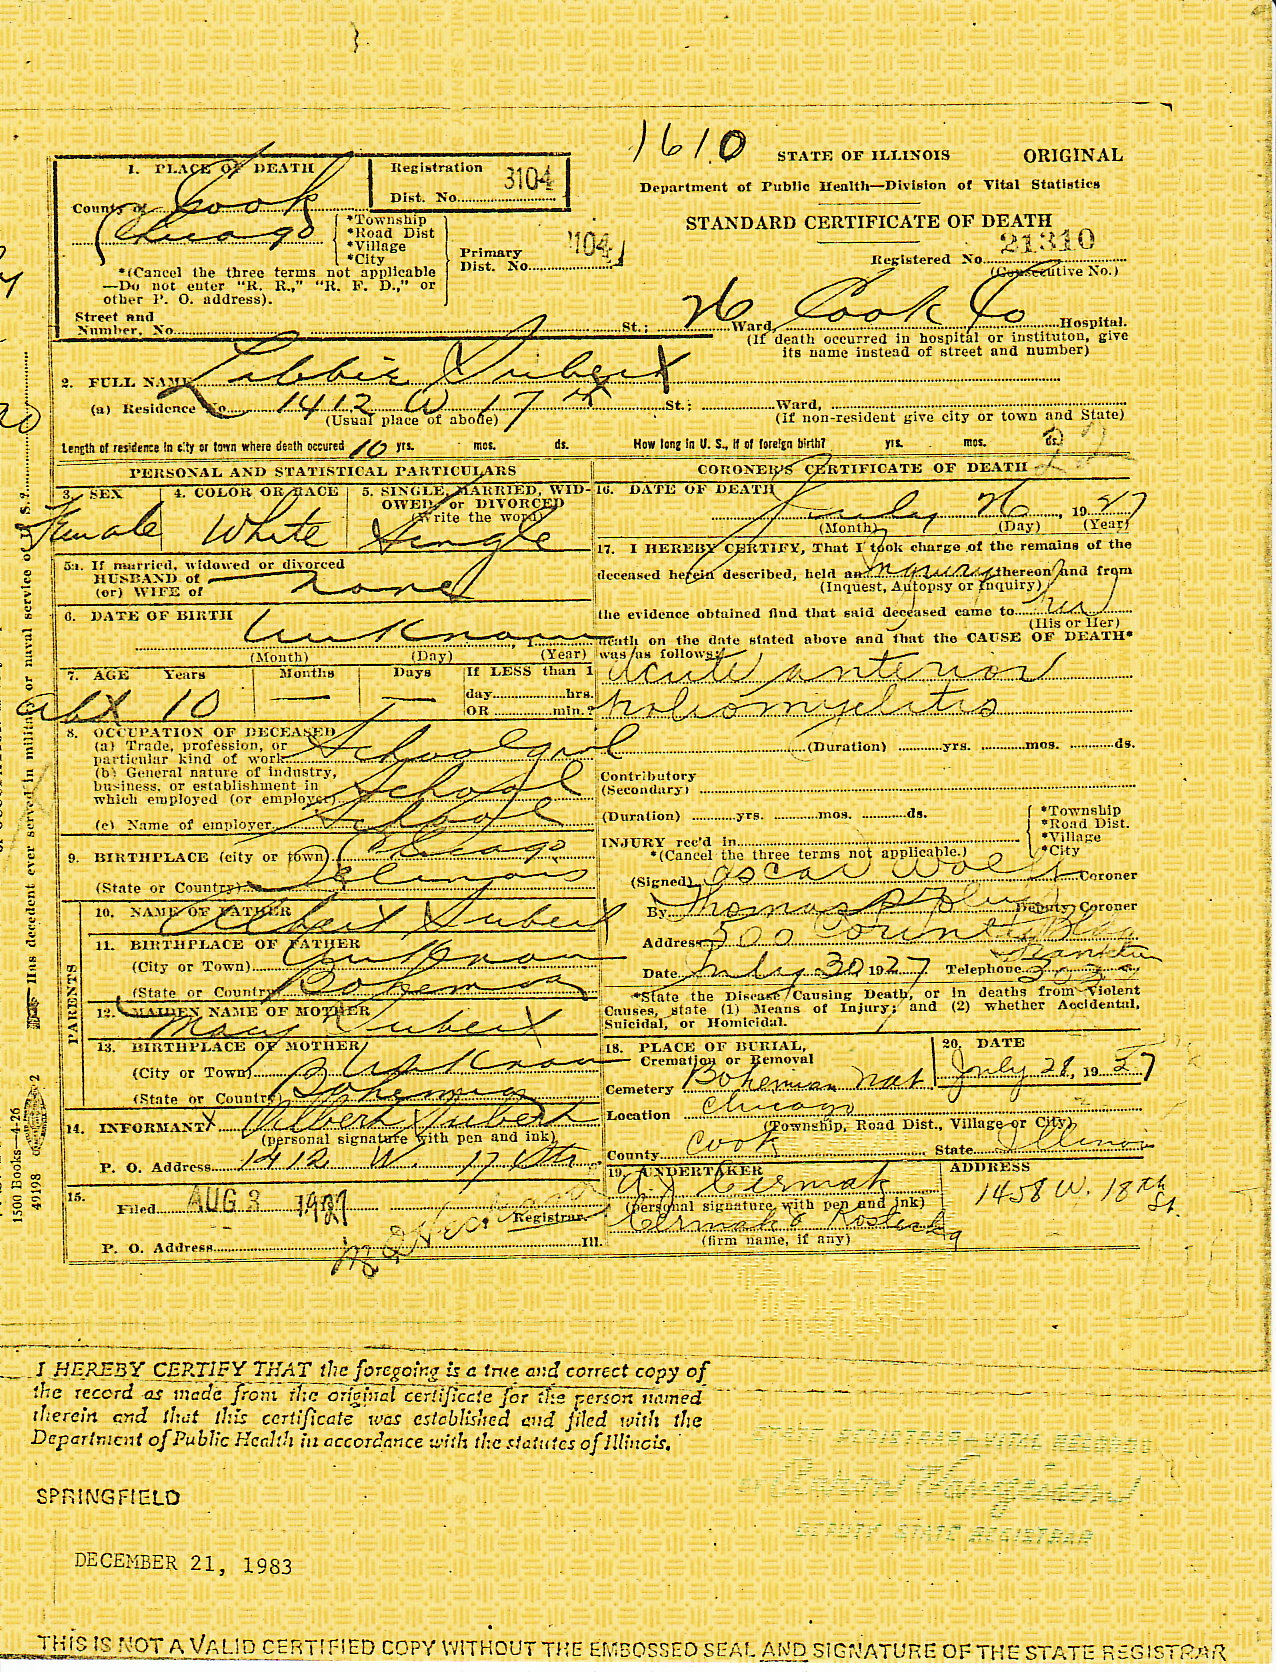 1610
STATE OF ILLINOIS ORIGINAL
Department of Public Health—Division of Vital Statistics
STANDARD CERTIFICATE OF DEATH
Registered No. 21310
(Consecutive No.)
1. PLACE OF DEATH
County of Cook
Chicago
Registration
Dist. No. 3104
*Township
*Road Dist
*Village
*City
Primary
Dist. No. 3104
*(Cancel the three terms not applicable
—Do not enter "R. R.," "R. F. D.," or
other P. O. address).
Street and
Number, No. St.; Ward, Cook Co Hospital.
(If death occurred in hospital or instituton, give
its name instead of street and number)
2. FULL NAME Libbie
(a) Residence No. 1412 W 17th St.; Ward,
(Usual place of abode) (If non-resident give city or town and State)
Length of residence in city or town where death occured 10 yrs. mos. ds. How long in U. S., if of foreign birth? yrs. mos. ds.
PERSONAL AND STATISTICAL PARTICULARS
3. SEX
Female
4. COLOR OR RACE
White
5. SINGLE, MARRIED, WID-
OWED, or DIVORCED
(Write the word)
Single
5a. If married, widowed or divorced
HUSBAND of
(or) WIFE of
none
6. DATE OF BIRTH
Unknown
(Month) (Day) (Year)
7. AGE Years Months Days If LESS than 1
day hrs.
OR min.?
abt 10 — —
8. OCCUPATION OF DECEASED
(a) Trade, profession, or
particular kind of work Schoolgirl
(b) General nature of industry,
business, or establishment in
which employed (or employer) School
(c) Name of employer School
9. BIRTHPLACE (city or town) Chicago
(State or Country) Illinois
PARENTS
10. NAME OF FATHER
Albert
11. BIRTHPLACE OF FATHER
(City or Town) Unknown
(State or Country) Bohemia
12. MAIDEN NAME OF MOTHER
Mary
13. BIRTHPLACE OF MOTHER
(City or Town) Unknown
(State or Country) Bohemia
14. INFORMANT Albert
(personal signature with pen and ink)
P. O. Address 1412 W. 17 Str.
15.
Filed AUG 3 1927
Registrar.
P. O. Address Ill.
CORONER'S CERTIFICATE OF DEATH
16. DATE OF DEATH
July 26, 1927
(Month) (Day) (Year)
17. I HEREBY CERTIFY, That I took charge of the remains of the
deceased herein described, held an Inquiry thereon and from
(Inquest, Autopsy or Inquiry)
the evidence obtained find that said deceased came to her
(His or Her)
death on the date stated above and that the CAUSE OF DEATH*
was as follows:
acute anterior
poliomyelitis
(Duration) yrs. mos. ds.
Contributory
(Secondary)
(Duration) yrs. mos. ds.
INJURY rec'd in
*(Cancel the three terms not applicable.)
*Township
*Road Dist.
*Village
*City
(Signed) Oscar Wolff Coroner
By Thomas Deputy Coroner
Address 500 County Bldg
Date July 30 1927 Telephone Franklin
*State the Disease Causing Death, or in deaths from Violent
Causes, state (1) Means of Injury; and (2) whether Accidental,
Suicidal, or Homicidal.
18. PLACE OF BURIAL,
Cremation or Removal
Cemetery Bohemian Nat
20. DATE
July 28, 1927
Location Chicago
(Township, Road Dist., Village or City)
County Cook State Illinois
19. UNDERTAKER
A J Cermak
(personal signature with pen and ink)
(firm name, if any)
ADDRESS
1458 W. 18th
St.
Has decedent ever served in military or naval service of U. S.?
1500 Books—4-26
49198 2
I HEREBY CERTIFY THAT the foregoing is a true and correct copy of
the record as made from the original certificate for the person named
therein and that this certificate was established and filed with the
Department of Public Health in accordance with the statutes of Illinois.
SPRINGFIELD
DECEMBER 21, 1983
STATE REGISTRAR—VITAL RECORDS
DEPUTY STATE REGISTRAR
THIS IS NOT A VALID CERTIFIED COPY WITHOUT THE EMBOSSED SEAL AND SIGNATURE OF THE STATE REGISTRAR